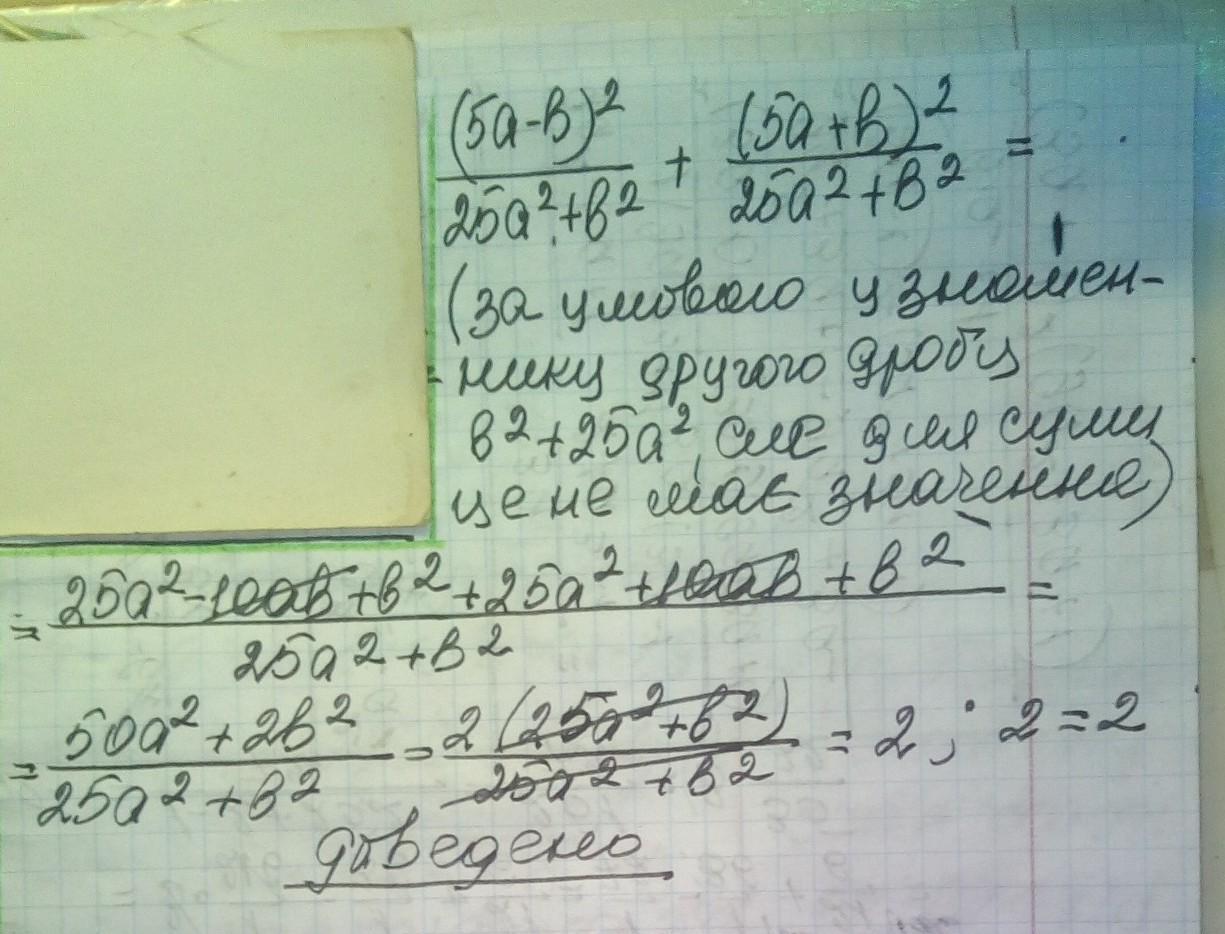 (5a-b)²/25a²+b² + (5a+b)²/25a²+b² =
(за умовою у знамен-
-нику другого дробу
b²+25a², але для суми
це не має значення)
= 25a²-10ab+b²+25a²+10ab+b²/25a²+b² =
= 50a²+2b²/25a²+b² = 2(25a²+b²)/25a²+b² = 2; 2=2
доведено